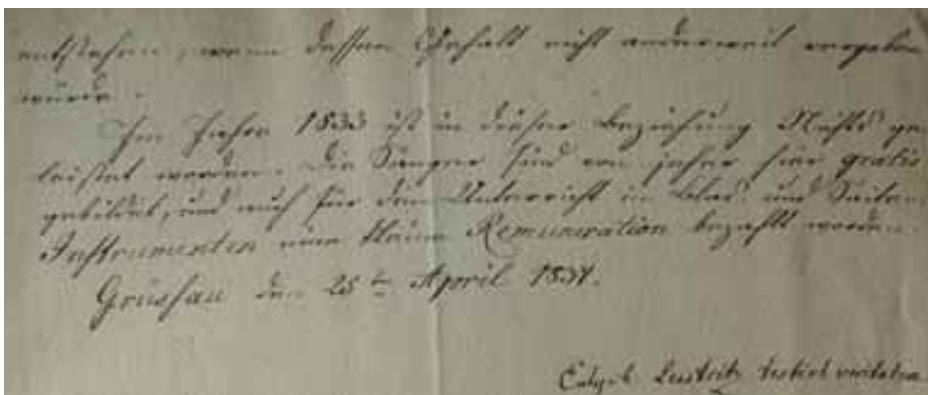 entstehen, wenn dessen Gehalt nicht anderweit vergeben
würde.
Im Jahre 1833 ist in dieser Beziehung Nichts ge-
leistet worden. Die Sänger sind von jeher hier gratis
gebildet, und auch für den Unterricht in Blas- und Saiten-
Instrumenten eine kleine Remuneration bezahlt worden.
Grüssau den 25ten April 1834.